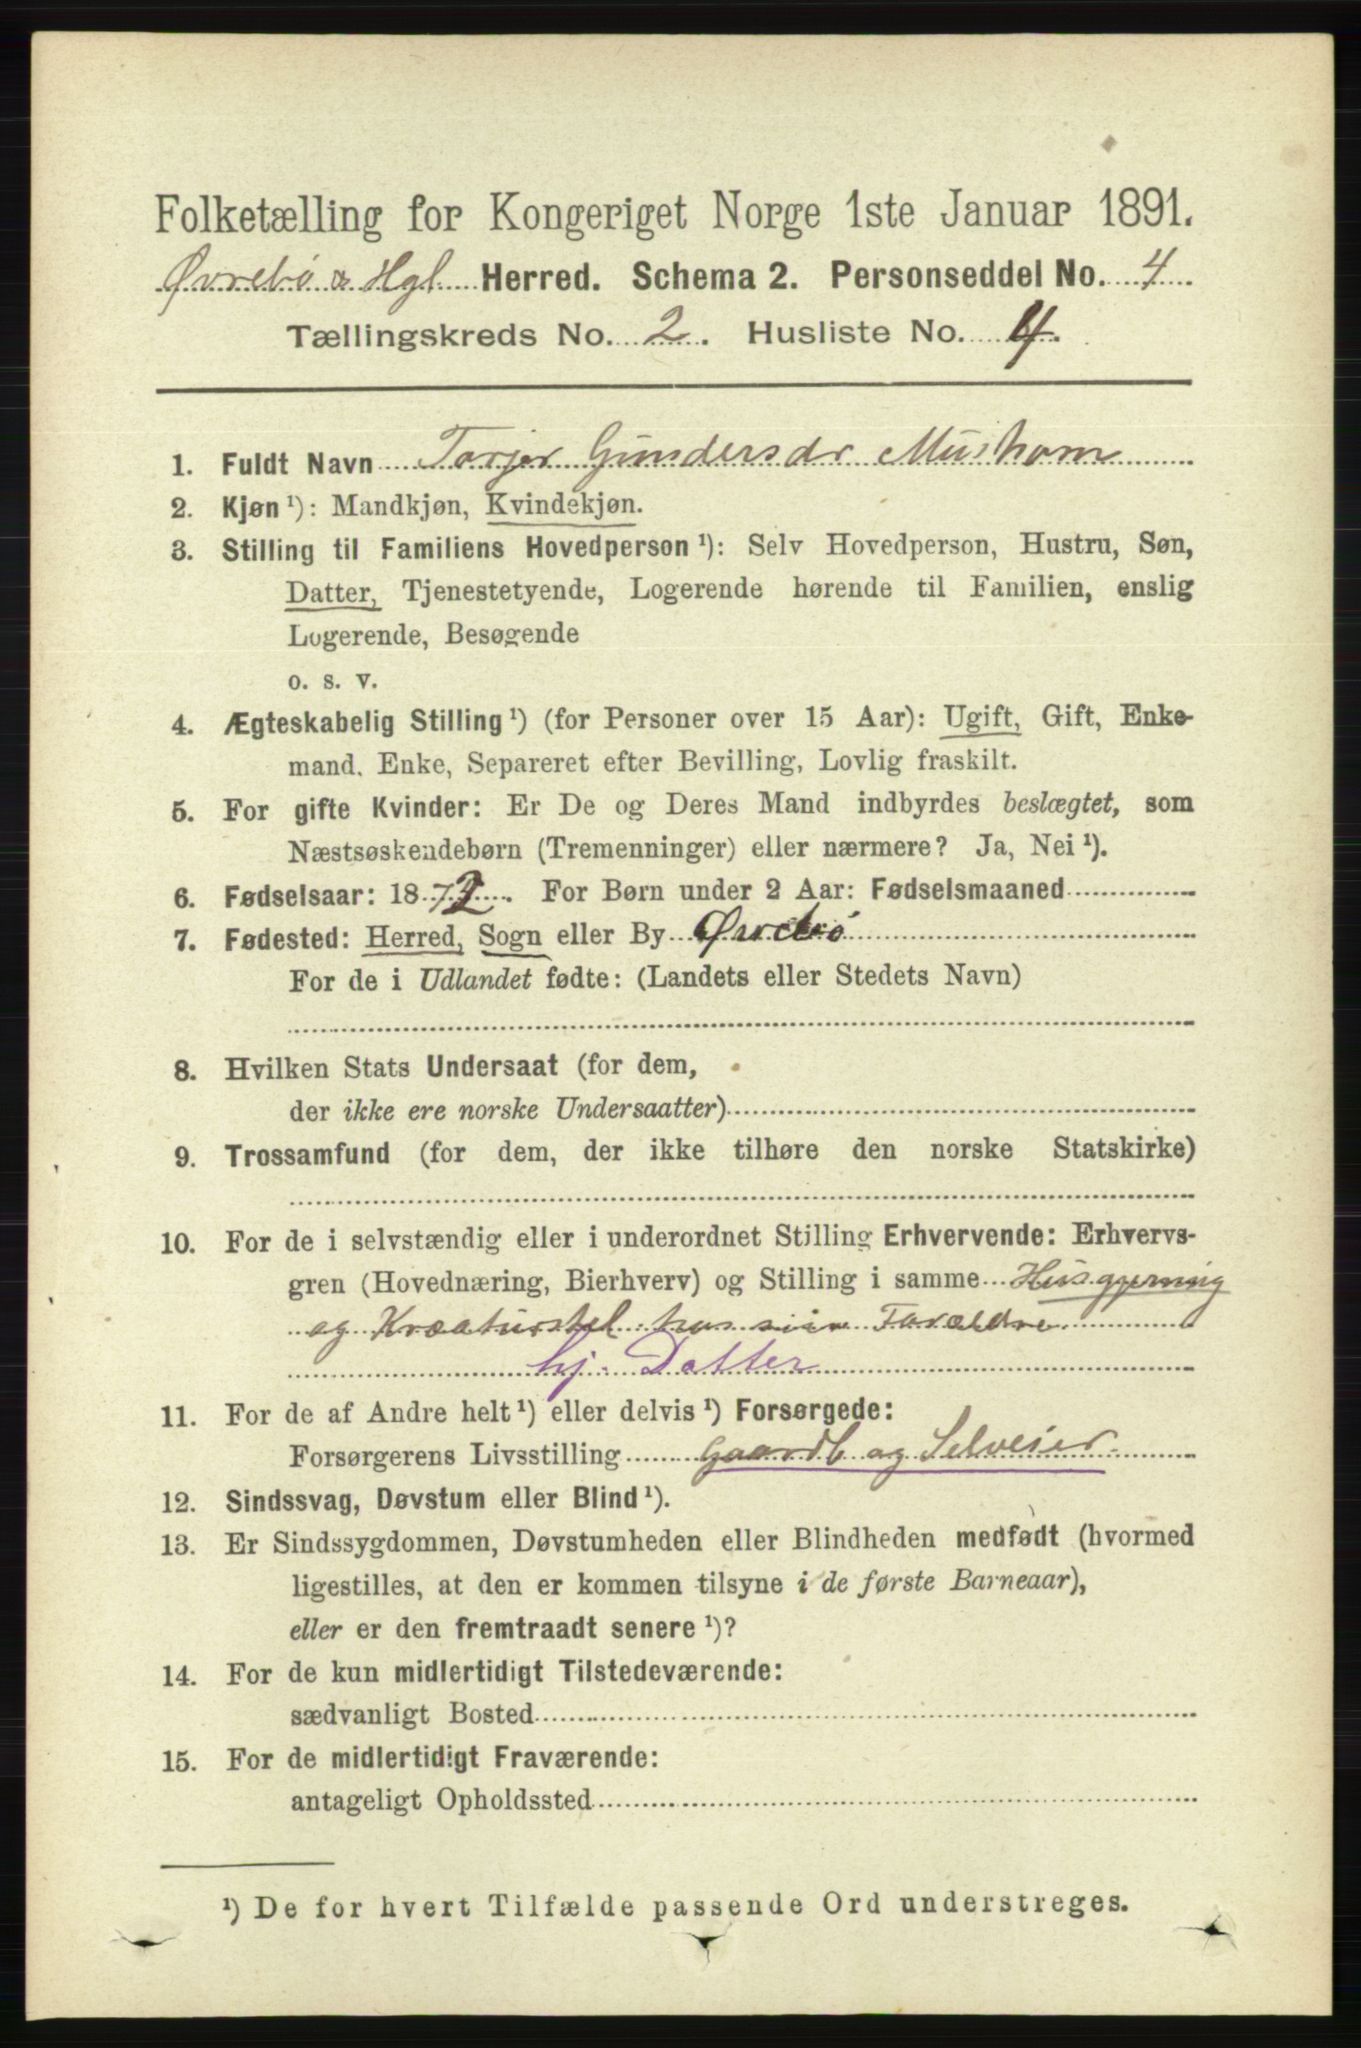 Folketælling for Kongeriget Norge 1ste Januar 1891.
Øvrebø & Hgl. Herred. Schema 2. Personseddel No. 4
Tællingskreds No. 2. Husliste No. 4.
1. Fuldt Navn Torjer Gundersdr Mushom
2. Kjøn ¹): Mandkjøn, Kvindekjøn.
3. Stilling til Familiens Hovedperson ¹): Selv Hovedperson, Hustru, Søn,
Datter, Tjenestetyende, Logerende hørende til Familien, enslig
Logerende, Besøgende
o. s. v.
4. Ægteskabelig Stilling ¹) (for Personer over 15 Aar): Ugift, Gift, Enke-
mand, Enke, Separeret efter Bevilling, Lovlig fraskilt.
5. For gifte Kvinder: Er De og Deres Mand indbyrdes beslægtet, som
Næstsøskendebørn (Tremenninger) eller nærmere? Ja, Nei ¹).
6. Fødselsaar: 1872. For Børn under 2 Aar: Fødselsmaaned
7. Fødested: Herred, Sogn eller By Øvrebø
For de i Udlandet fødte: (Landets eller Stedets Navn)
8. Hvilken Stats Undersaat (for dem,
der ikke ere norske Undersaatter)
9. Trossamfund (for dem, der ikke tilhøre den norske Statskirke)
10. For de i selvstændig eller i underordnet Stilling Erhvervende: Erhvervs-
gren (Hovednæring, Bierhverv) og Stilling i samme Husgjerning
og Kreaturstel hos sine Forældre
hj. Datter
11. For de af Andre helt ¹) eller delvis ¹) Forsørgede:
Forsørgerens Livsstilling Gaardb og Selveier.
12. Sindssvag, Døvstum eller Blind ¹).
13. Er Sindssygdommen, Døvstumheden eller Blindheden medfødt (hvormed
ligestilles, at den er kommen tilsyne i de første Barneaar),
eller er den fremtraadt senere ¹)?
14. For de kun midlertidigt Tilstedeværende:
sædvanligt Bosted
15. For de midlertidigt Fraværende:
antageligt Opholdssted
¹) De for hvert Tilfælde passende Ord understreges.